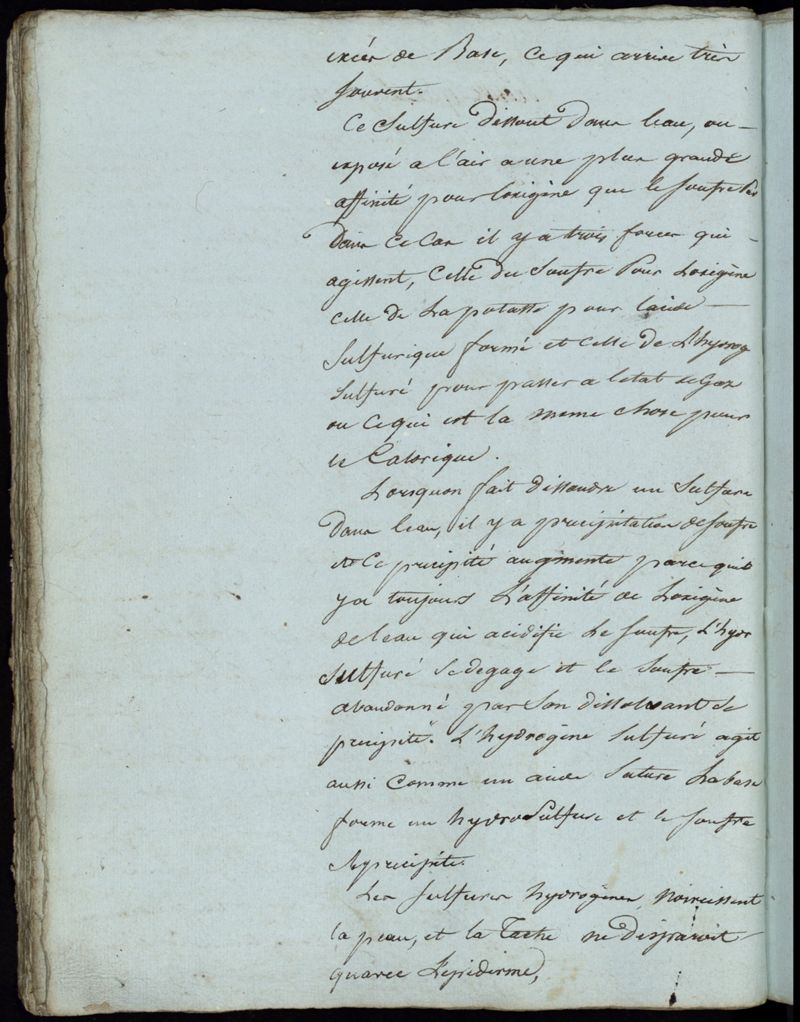 excès de Base, ce qui arrive très
souvent.
Ce Sulfure dissout Dans leau, ou
exposé a l'air a une plus grande
affinité pour loxigène que le soufre
Dans ce Cas il y a trois forces qui
agissent, Celle du Soufre Pour Loxigène
celle de La potasse pour lacide
Sulfurique formé et celle de L'hydrog
Sulfuré pour passer a letat de Gaz
ou Ce qui est la meme chose pour
le Calorique.
Lorsquon fait dissoudre un Sulfure
Dans leau, il y a precipitation de soufre
et Ce precipité augmente parce quil
y a toujours L'affinité de Loxigène
de leau qui acidifie Le soufre, L'hydr
Sulfuré Se degage et le soufre
abandonné par Son dissolvant Se
precipite. L'hydrogène Sulfuré agit
aussi Comme un acide Sature La base
forme un hydro Sulfure et le soufre
Se precipite.
Les Sulfures hydrogenes, Noircissent
la peau, et la Tache ne Disparoit
quavec Lepiderme,